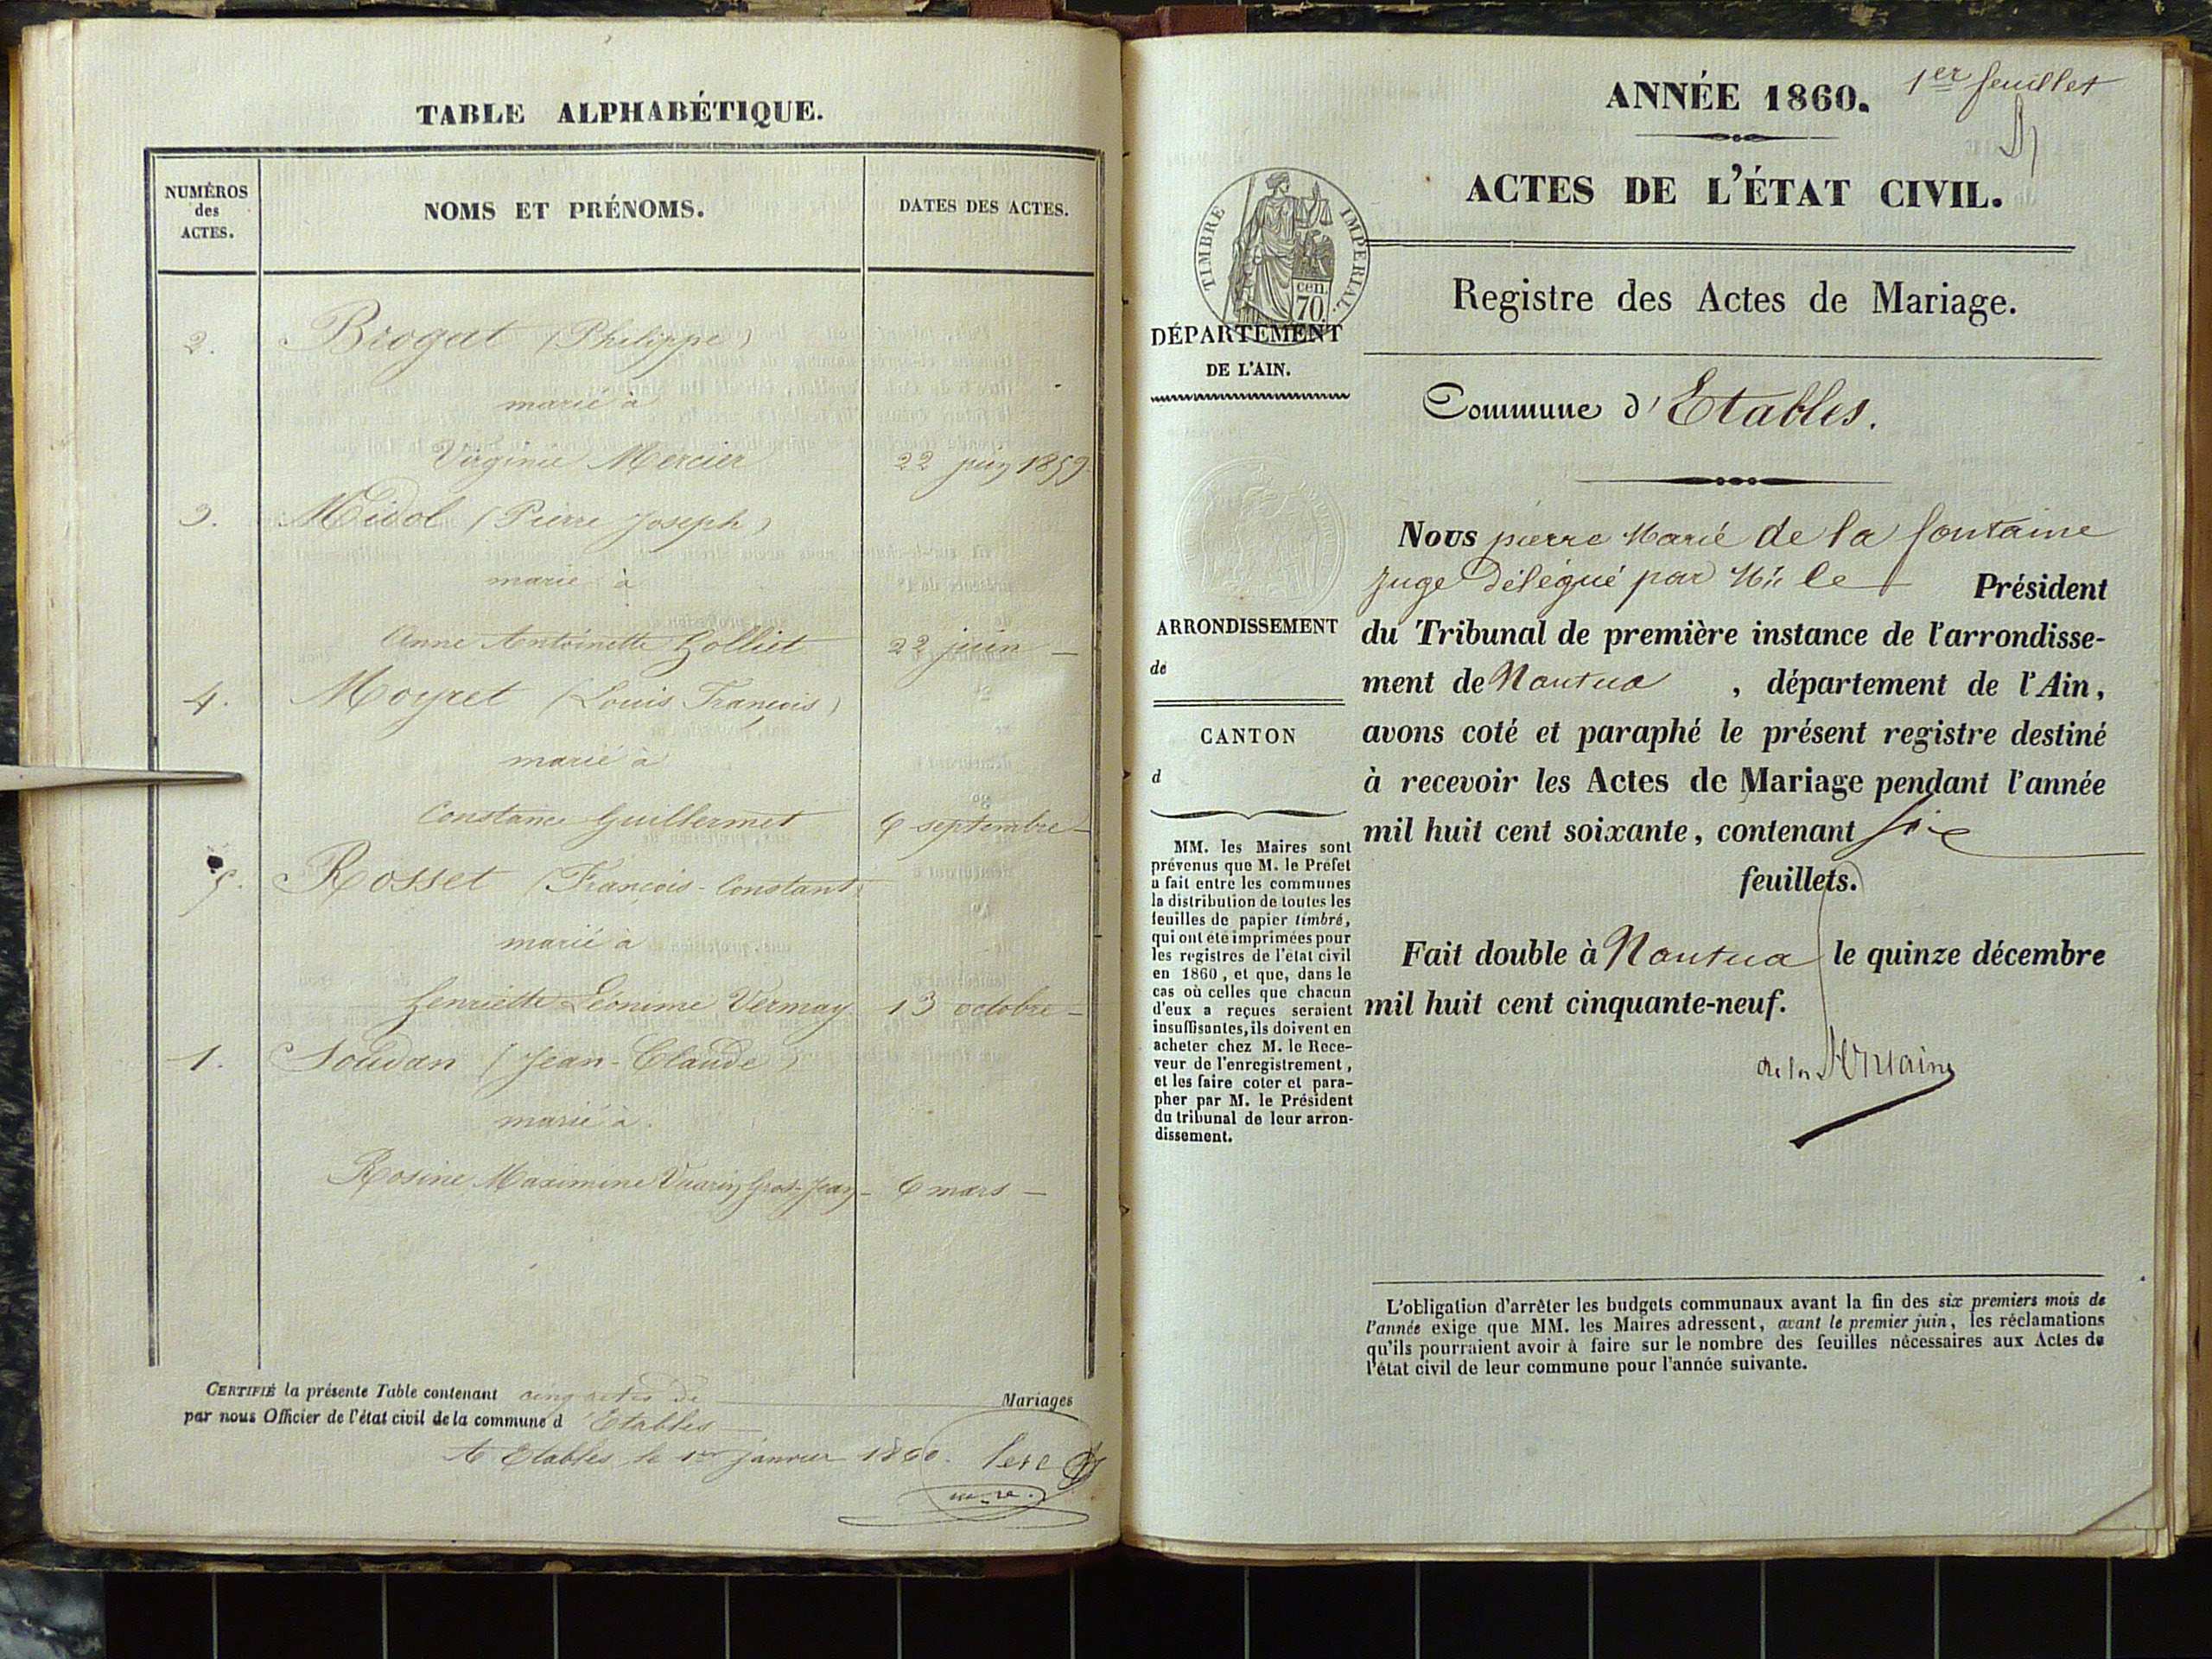 TABLE ALPHABÉTIQUE.
NUMÉROS
des
ACTES.
NOMS ET PRÉNOMS.
DATES DES ACTES.
2. Brogat (Philippe)
marié à
Virginie Mercier 22 juin 1859
3. Midol (Pierre Joseph)
marié à
Anne Antoinette Golliet 22 juin —
4. Moyret (Louis François)
marié à
Constance Guillermet 6 septembre —
5. Rosset (François-Constant)
marié à
henriette Léonime Vermay 13 octobre —
1. Soudan (Jean-Claude)
marié à
Rosine Maximine Vuarin Gros-Jean — 6 mars —
CERTIFIÉ la présente Table contenant cinq actes de Mariages
par nous Officier de l'état civil de la commune d'Etables
A Etables le 1er janvier 1860.
1er feuillet
ANNÉE 1860.
ACTES DE L'ÉTAT CIVIL.
TIMBRE IMPÉRIAL
CEN. 70
Registre des Actes de Mariage.
DÉPARTEMENT
DE L'AIN.
Commune d'Etables.
ARRONDISSEMENT
de
CANTON
d
MM. les Maires sont
prévenus que M. le Préfet
a fait entre les communes
la distribution de toutes les
feuilles de papier timbré,
qui ont été imprimées pour
les registres de l'état civil
en 1860, et que, dans le
cas où celles que chacun
d'eux a reçues seraient
insuffisantes, ils doivent en
acheter chez M. le Rece-
veur de l'enregistrement,
et les faire coter et para-
pher par M. le Président
du tribunal de leur arron-
dissement.
Nous pierre Marie de la fontaine
juge délégué par Mr le Président
du Tribunal de première instance de l'arrondisse-
ment de Nantua , département de l'Ain,
avons coté et paraphé le présent registre destiné
à recevoir les Actes de Mariage pendant l'année
mil huit cent soixante, contenant six
feuillets.
Fait double à Nantua le quinze décembre
mil huit cent cinquante-neuf.
L'obligation d'arrêter les budgets communaux avant la fin des six premiers mois de
l'année exige que MM. les Maires adressent, avant le premier juin, les réclamations
qu'ils pourraient avoir à faire sur le nombre des feuilles nécessaires aux Actes de
l'état civil de leur commune pour l'année suivante.